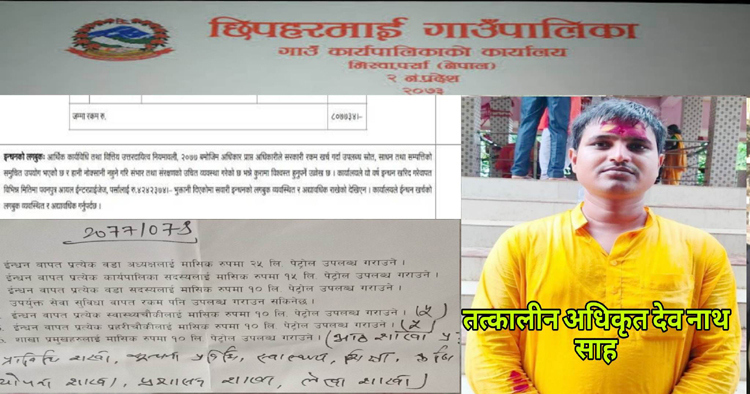 छिपहरमाई गाउँपालिका
गाउँ कार्यपालिकाको कार्यालय
मिस्वा,पर्सा (नेपाल)
२ नं.प्रदेश
२०७३
जम्मा रकम रु.
८०७७३४।-
इन्धनको लगबुकः आर्थिक कार्यविधि तथा वित्तिय उत्तरदायित्व नियमावली, २०७७ बमोजिम अधिकार प्राप्त अधिकारीले सरकारी रकम खर्च गर्दा उपलब्ध स्रोत, साधन तथा सम्पत्तिको
समुचित उपयोग भएको छ र हानी नोक्सानी नहुने गरि संभार तथा संरक्षणको उचित व्यवस्था गरेको छ भन्ने कुरामा विश्वस्त हुनुपर्ने उल्लेख छ । कार्यालयले यो वर्ष इन्धन खरिद गरेवापत
विभिन्न मितिमा पवनपुत्र आयल ईन्टरप्राईजेज, पर्सालाई रु.४२४२३७४।- भुक्तानी दिएकोमा सवारी इन्धनको लगबुक व्यवस्थित र अद्यावधिक राखेको देखिएन । कार्यालयले ईन्धन खर्चको
लगबुक व्यवस्थित र अद्यावधिक गर्नुपर्दछ ।
ईन्धन बापत प्रत्येक वडा अध्यक्षलाई मासिक रुपमा २५ लि. पेट्रोल उपलब्ध गराउने ।
ईन्धन बापत प्रत्येक कार्यपालिका सदस्यलाई मासिक रुपमा १५ लि. पेट्रोल उपलब्ध गराउने ।
ईन्धन बापत प्रत्येक वडा सदस्यलाई मासिक रुपमा १० लि. पेट्रोल उपलब्ध गराउने ।
उपर्युक्त सेवा सुविधा बापत रकम पनि उपलब्ध गराउन सकिनेछ ।
ईन्धन बापत प्रत्येक स्वास्थ्यचौकीलाई मासिक रुपमा १० लि. पेट्रोल उपलब्ध गराउने ।
ईन्धन बापत प्रत्येक प्रहरीचौकीलाई मासिक रुपमा १० लि. पेट्रोल उपलब्ध गराउने ।
शाखा प्रमुखहरुलाई मासिक रुपमा १० लि. पेट्रोल उपलब्ध गराउने ।
योजना शाखा, प्रशासन शाखा, लेखा शाखा)
तत्कालीन अधिकृत देव नाथ
साह